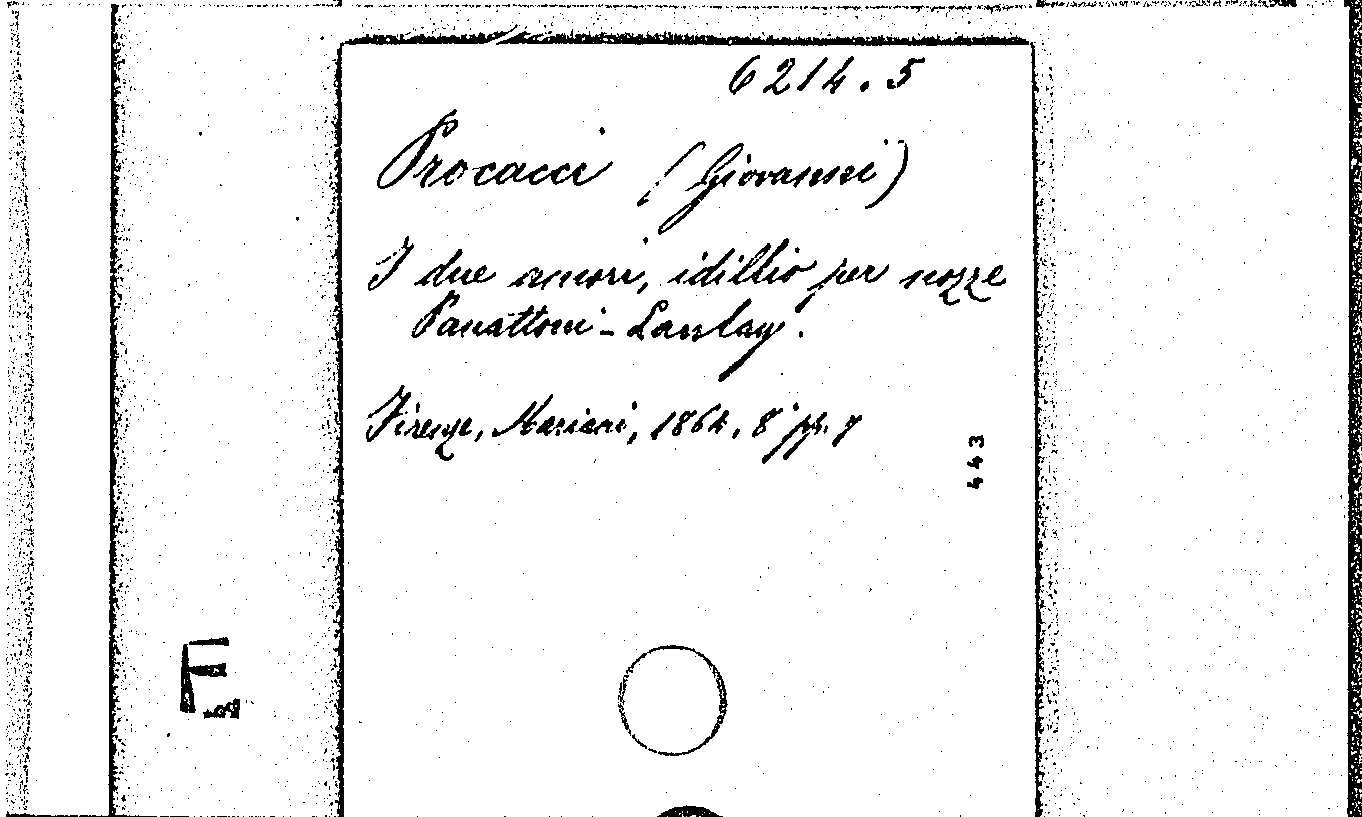 6214.5
Procacci (Giovanni)
I due amori, idillio per nozze
Panattoni - Lanlay.
Firenze, Mariani, 1864, 8° pp. 7
443